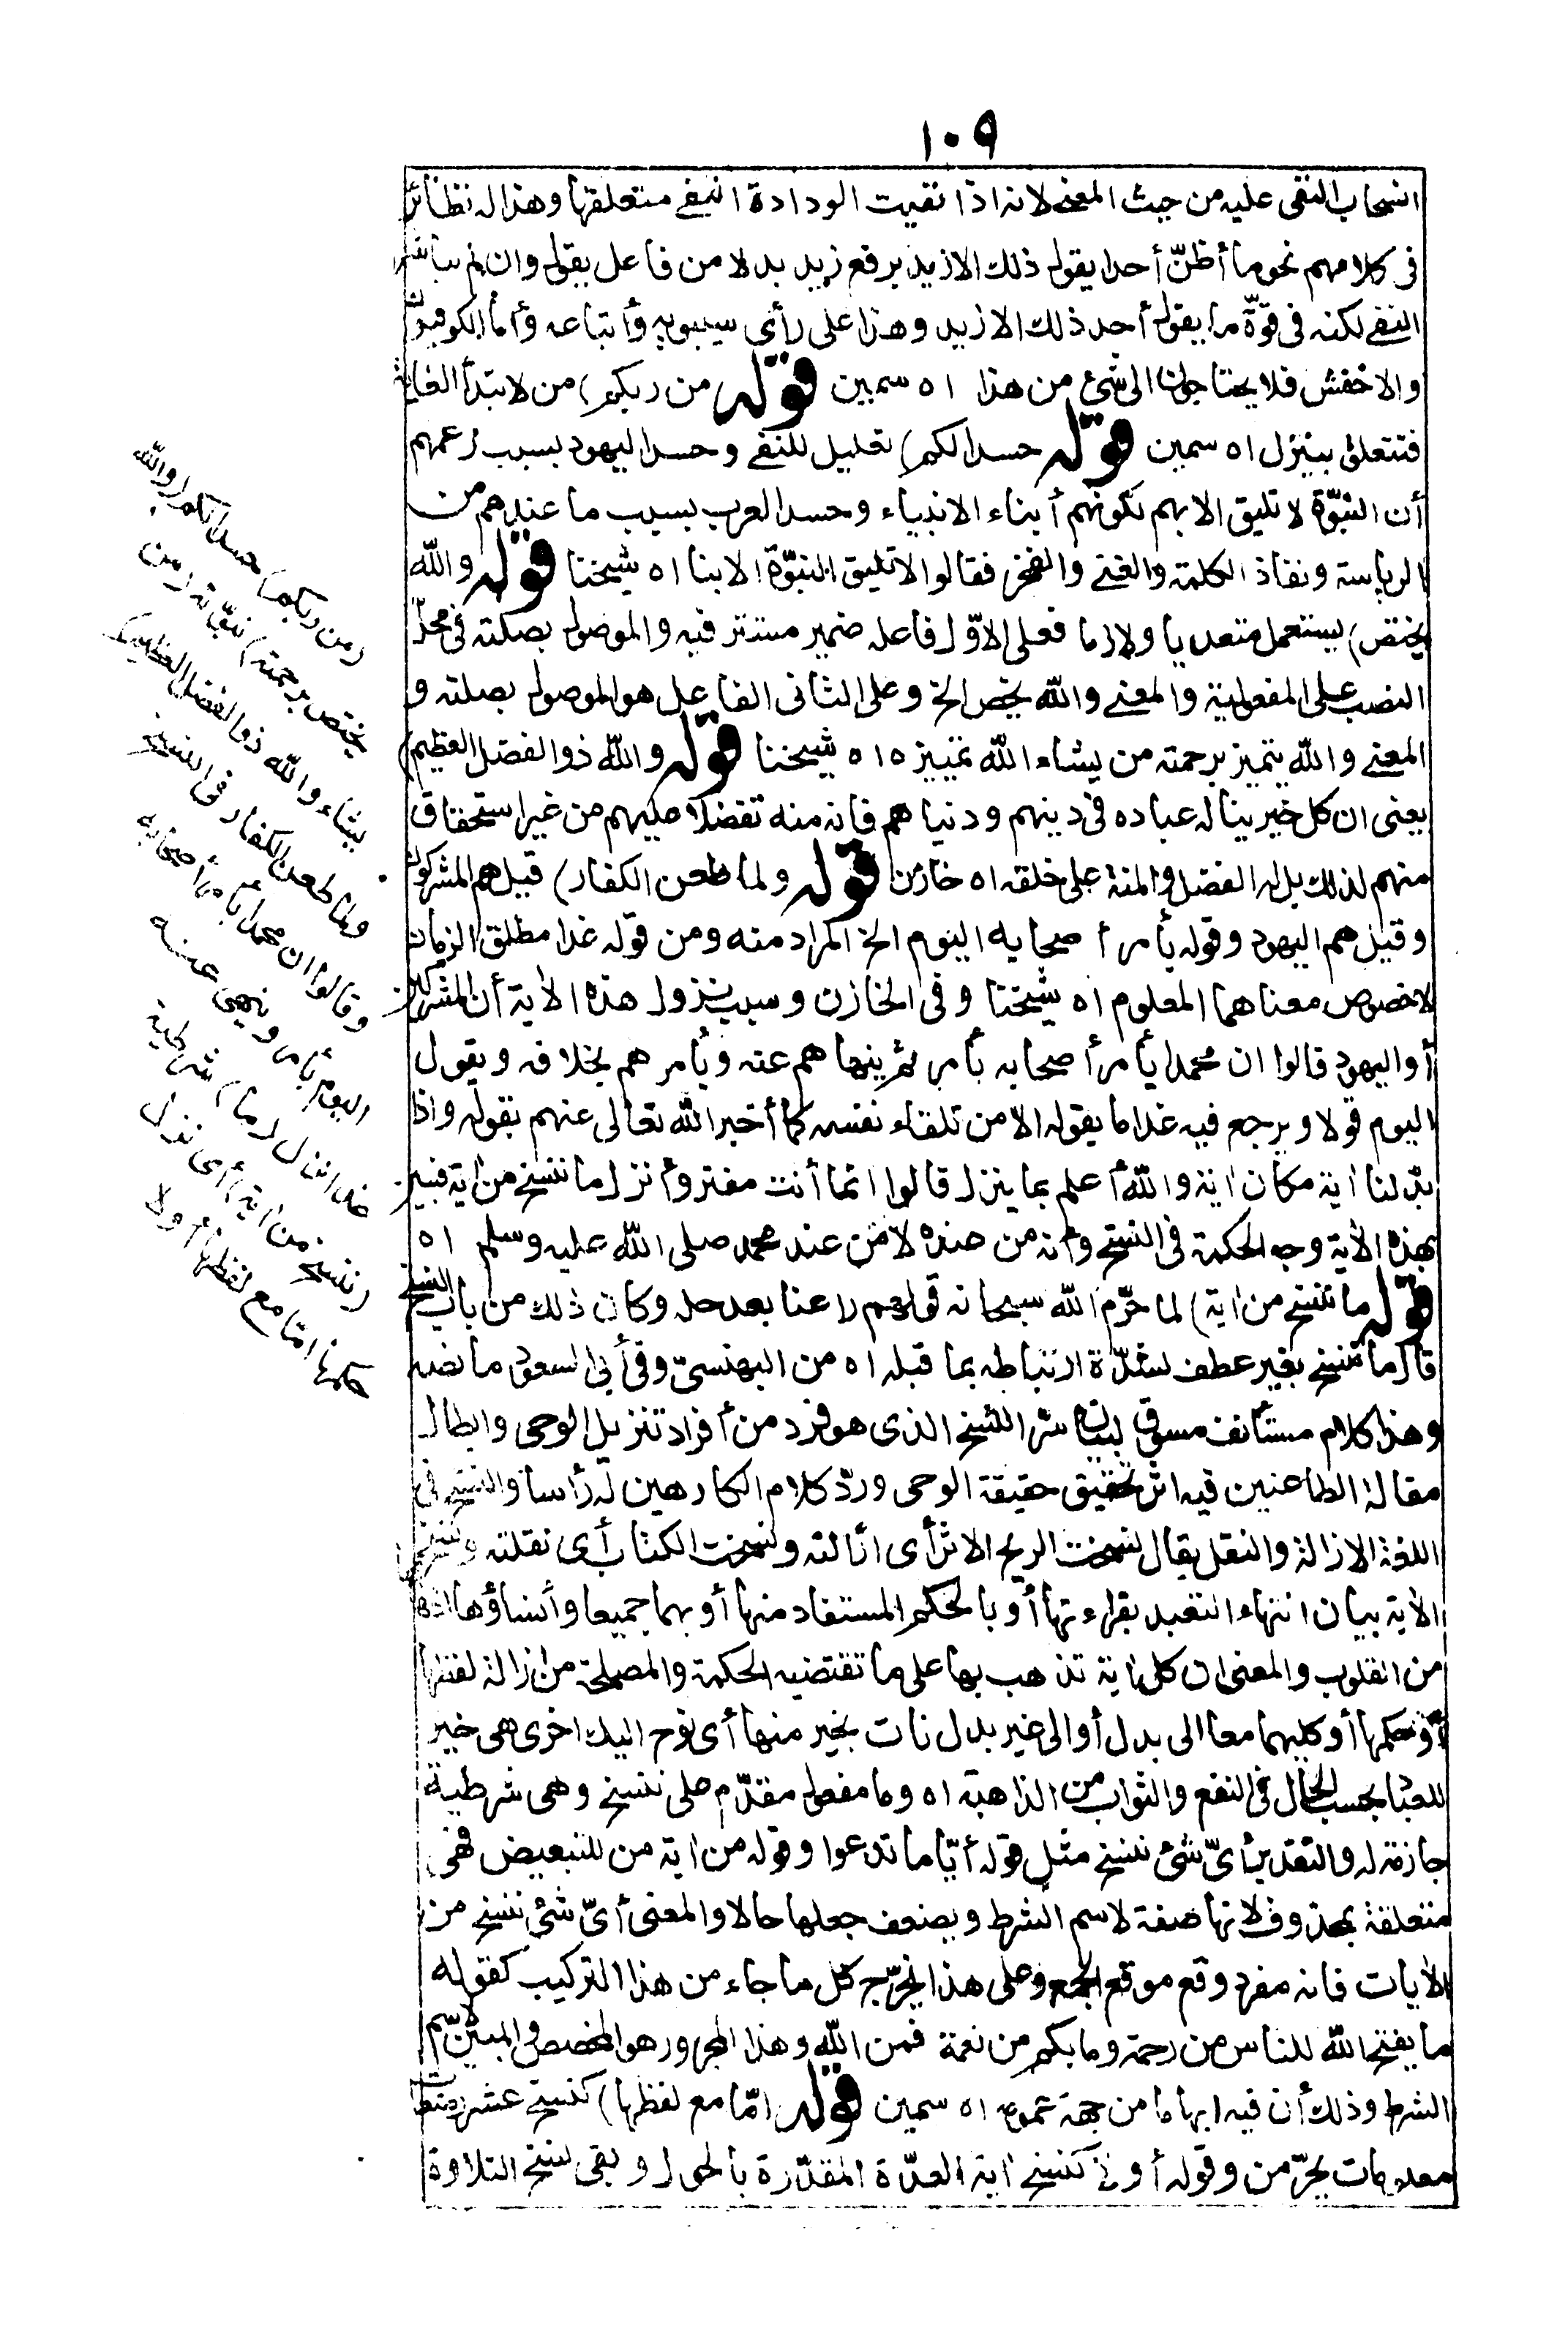 ١٠٩
انسحاب النفى عليه من حيث المعنى لانه اذا نفيت الودادة انتفى متعلقها وهذا له نظائر
فى كلامهم نحو ما أظنّ أحدا يقول ذلك الا زيد برفع زيد بدلا من فاعل يقول وان لم يباشر
النفى لكنه فى قوّة ما يقول أحد ذلك الا زيد وهذا على رأى سيبويه وأتباعه وأما الكوفيون
والاخفش فلا يحتاجون الى شئ من هذا اه سمين قوله من ربكم) من لابتداء الغاية
فتتعلق بينزل اه سمين قوله حسدا لكم) تعليل للنفى وحسد اليهود بسبب زعمهم
أن النبوّة لا تليق الا بهم لكونهم أبناء الانبياء وحسد العرب بسبب ما عندهم من
الرياسة ونفاذ الكلمة والغنى والفخر فقالوا لا تليق النبوّة الا بنا اه شيخنا قوله والله
يختص) يستعمل متعديا ولازما فعلى الاوّل فاعله ضمير مستتر فيه والموصول بصلته فى محلّ
النصب على المفعولية والمعنى والله يخص الخ وعلى الثانى الفاعل هو الموصول بصلته و
المعنى والله يتميز برحمته من يشاء الله تمييزه اه شيخنا قوله والله ذو الفضل العظيم)
يعنى ان كل خير يناله عباده فى دينهم ودنياهم فانه منه تفضلا عليهم من غير استحقاق
منهم لذلك بل له الفضل والمنة على خلقه اه خازن قوله ولما طعن الكفار) قيل هم المشركون
وقيل هم اليهود وقوله يأمر أصحابه اليوم الخ المراد منه ومن قوله غدا مطلق الزمان
لا خصوص معناهما المعلوم اه شيخنا وفى الخازن وسبب نزول هذه الاية أن المشركين
أو اليهود قالوا ان محمدا يأمر أصحابه بأمر ثم ينهاهم عنه ويأمرهم بخلافه ويقول
اليوم قولا ويرجع فيه غدا ما يقوله الا من تلقاء نفسه كما أخبر الله تعالى عنهم بقوله واذا
بدّلنا اية مكان اية والله أعلم بما ينزل قالوا انما أنت مفتر وأنزل ما ننسخ من اية فبين
بهذه الاية وجه الحكمة فى النسخ وانه من عنده لا من عند محمد صلى الله عليه وسلم اه
قوله ما ننسخ من اية) لما حرّم الله سبحانه قولهم راعنا بعد حله وكان ذلك من باب النسخ
قال ما ننسخ بغير عطف لشدّة ارتباطه بما قبله اه من البهنسىّ وفى أبى السعود ما نصه
وهذا كلام مستأنف مسوق لبيان سرّ النسخ الذى هو فرد من أفراد تنزيل الوحى وابطال
مقالة الطاعنين فيه اثر تحقيق حقيقة الوحى وردّ كلام الكارهين له رأسا والنسخ فى
اللغة الازالة والنقل يقال نسخت الريح الاثر أى ازالته ونسخت الكتاب أى نقلته ونسخ
الاية بيان انتهاء التعبد بقراءتها أو بالحكم المستفاد منها أو بهما جميعا وأنساؤها اذهابها
من القلوب والمعنى ان كل اية تذهب بها على ما تقتضيه الحكمة والمصلحة من ازالة لفظها
أو حكمها أو كليهما معا الى بدل أو الى غير بدل نات بخير منها أى نوح اليك اخرى هى خير
للعباد بحسب الحال فى النفع والثواب من الذاهبة اه وما مفعول مقدّم على ننسخ وهى شرطية
جازمة له والتقدير أىّ شئ ننسخ مثل قوله أيّاما تدعوا وقوله من اية من للتبعيض فهى
متعلقة بمحذوف لانها صفة لاسم الشرط ويضعف جعلها حالا والمعنى أىّ شئ ننسخ من
الايات فانه مفرد وقع موقع الجمع وعلى هذا يخرّج كل ما جاء من هذا التركيب كقوله
ما يفتح الله للناس من رحمة وما بكم من نعمة فمن الله وهذا المجرور هو المخصص والمبين لاسم
الشرط وذلك أن فيه ابهاما من جهة عمومه اه سمين قوله امّا مع لفظها) كنسخ عشر رضعات
معلومات يحرّمن وقوله أولا كنسخ اية العدّة المقدّرة بالحول وبقى نسخ التلاوة
(من ربكم) حسدا لكم (والله
يختص برحمته) نبوّته (من
يشاء والله ذو الفضل العظيم)
ولما طعن الكفار فى النسخ
وقالوا ان محمدا يأمر أصحابه
اليوم بأمر وينهى عنه
غدا نزل (ما) شرطية
(ننسخ من اية) أى نزل
حكمها امّا مع لفظها أولا